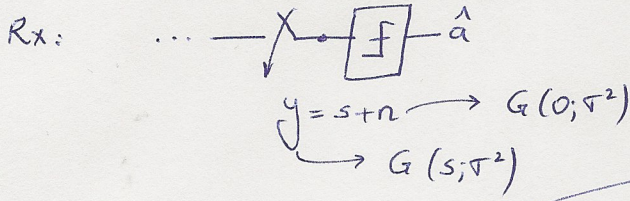 Rx: ... â
y = s+n → G(0;σ²)
→ G(s;σ²)